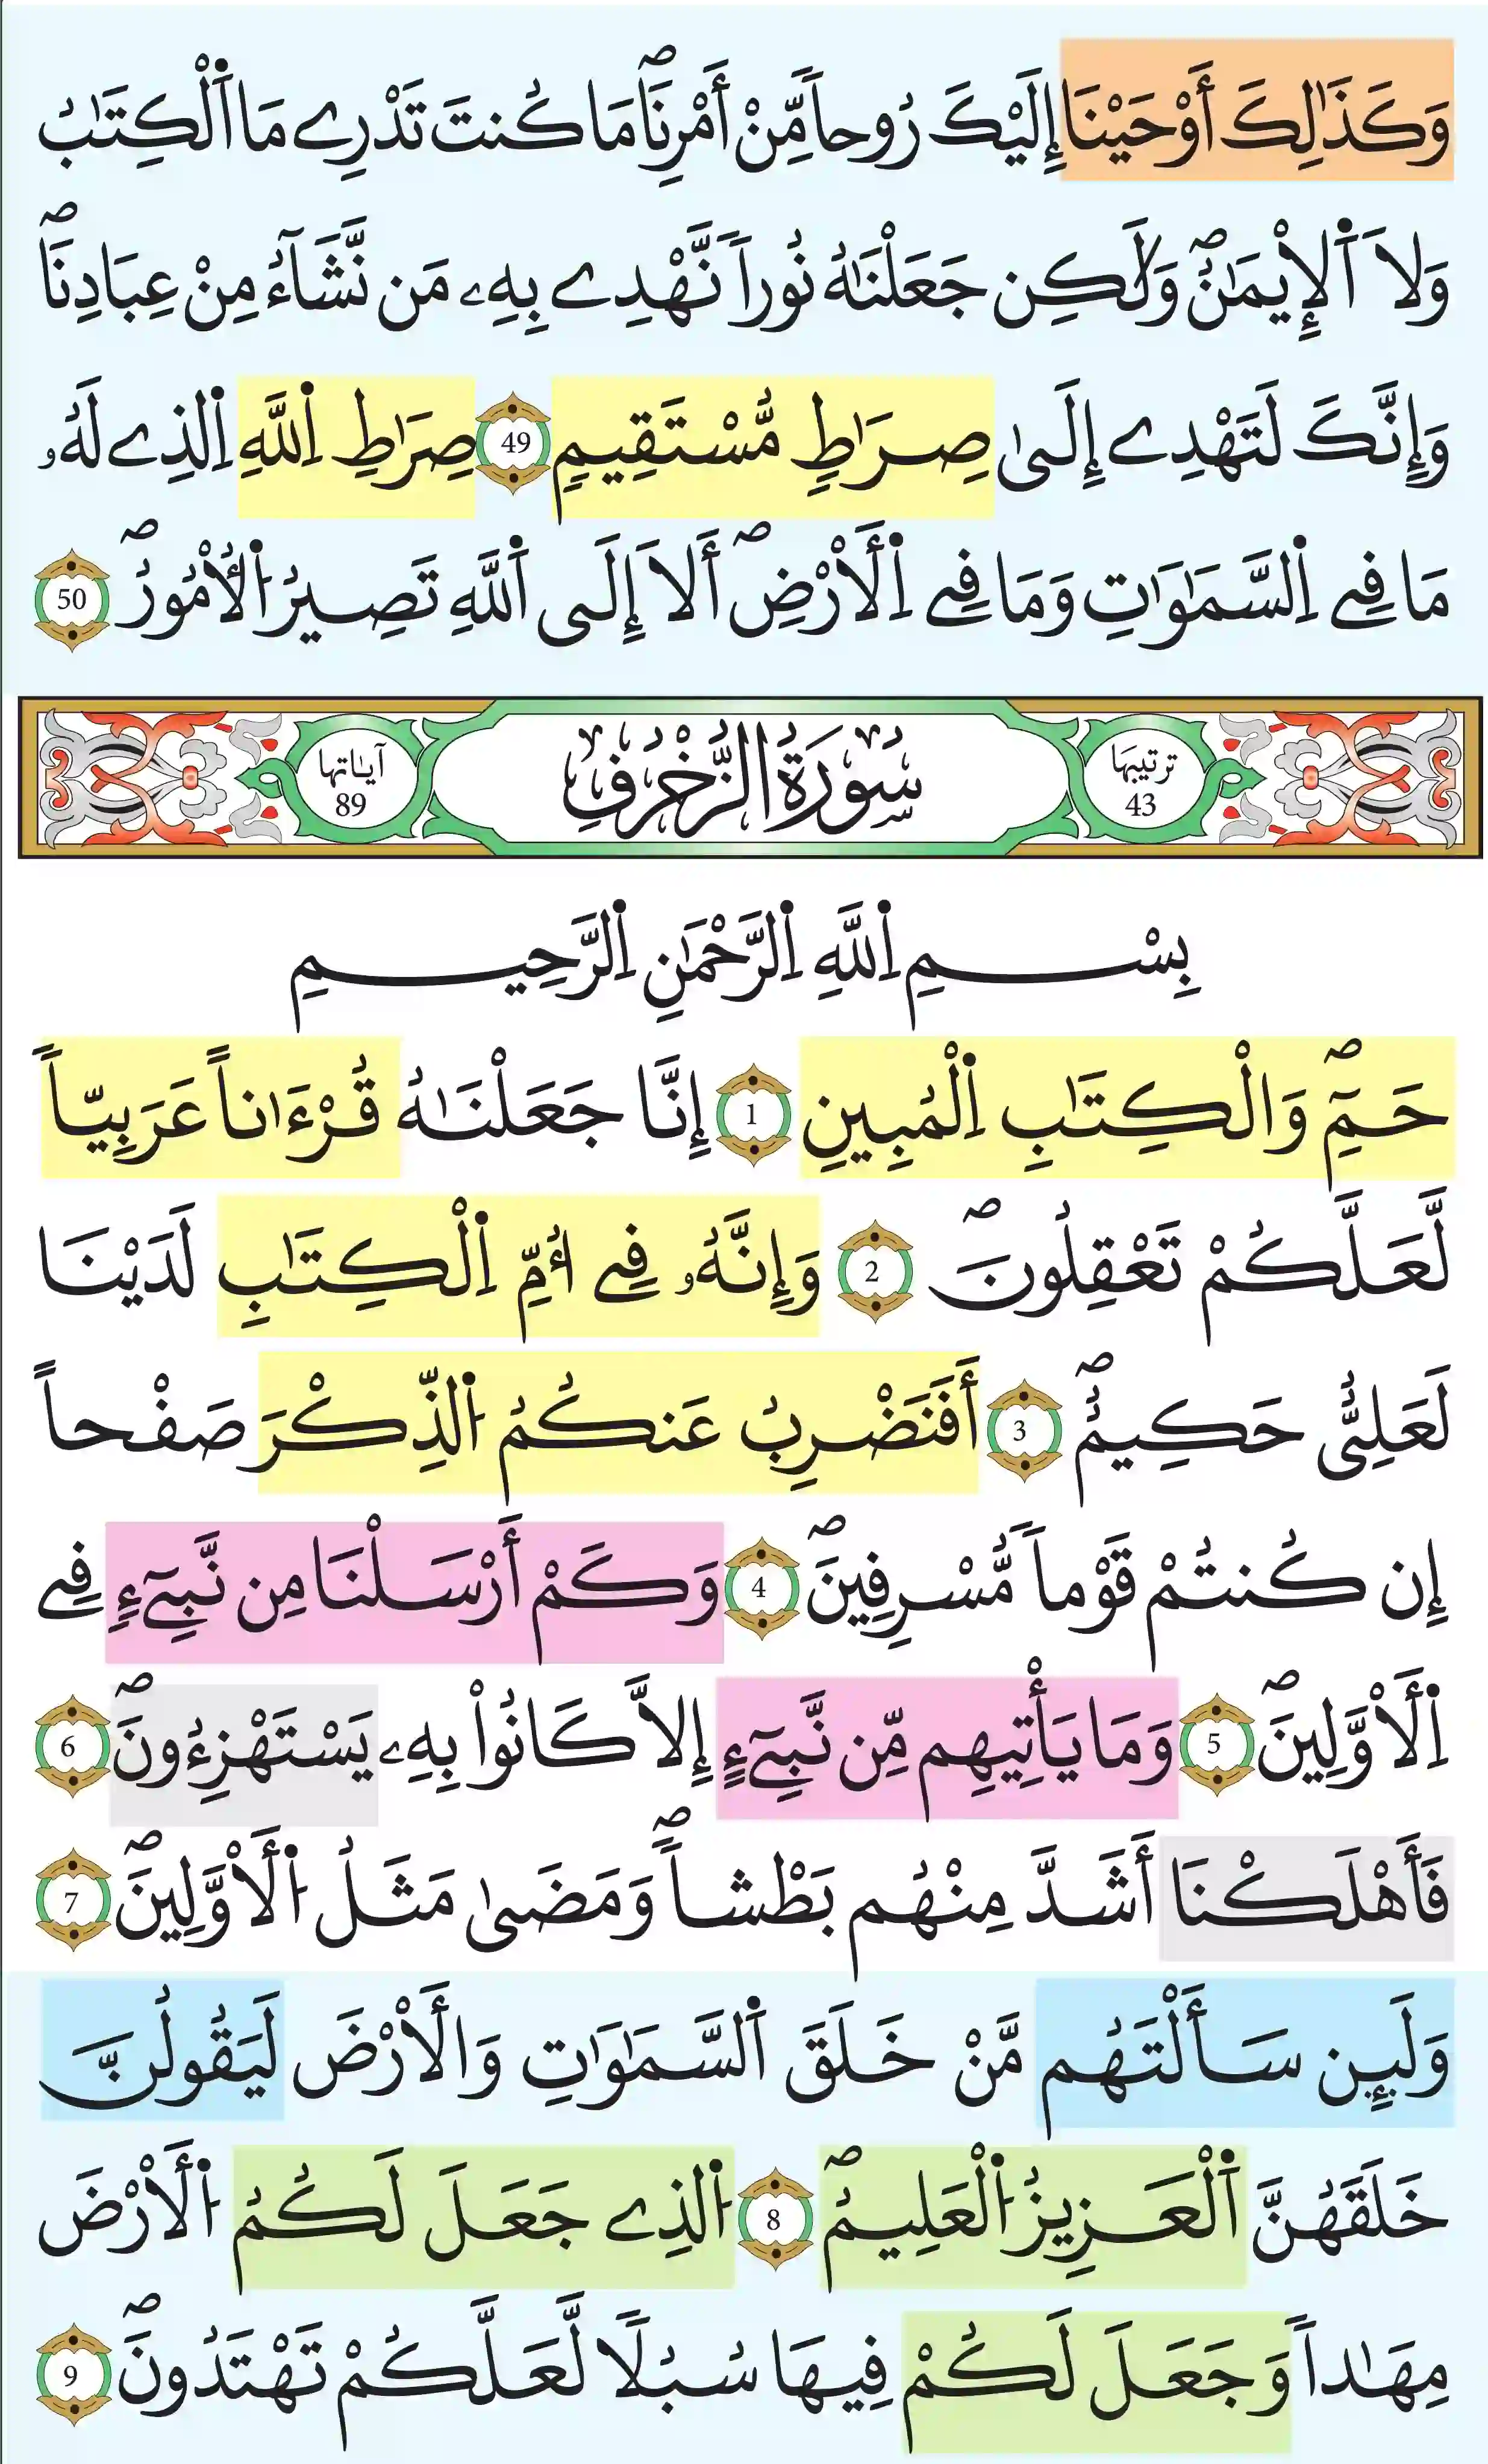 وَكَذَٰلِكَ أَوْحَيْنَا إِلَيْكَ رُوحاً مِّنْ أَمْرِنَاۖ مَا كُنتَ تَدْرِے مَا اَ۬لْكِتَٰبُ
وَلَا اَ۬لْإِيمَٰنُۖ وَلَٰكِن جَعَلْنَٰهُ نُوراً نَّهْدِے بِهِۦ مَن نَّشَآءُ مِنْ عِبَادِنَاۖ
وَإِنَّكَ لَتَهْدِے إِلَىٰ صِرَٰطٍ مُّسْتَقِيمٍ 49 صِرَٰطِ اِ۬للَّهِ اِ۬لذِے لَهُۥ
مَا فِے اِ۬لسَّمَٰوَٰتِ وَمَا فِے اِ۬لْأَرْضِۖ أَلَا إِلَى اَ۬للَّهِ تَصِيرُ اُ۬لْأُمُورُۖ 50
ترتيبها 43 سُورَةُ الزُّخْرُفِ آياتها 89
بِسْمِ اِ۬للَّهِ اِ۬لرَّحْمَٰنِ اِ۬لرَّحِيمِ
حَمِٓۖ وَالْكِتَٰبِ اِ۬لْمُبِينِ 1 إِنَّا جَعَلْنَٰهُ قُرْءَاناً عَرَبِيّاً
لَّعَلَّكُمْ تَعْقِلُونَۖ 2 وَإِنَّهُۥ فِے أُمِّ اِ۬لْكِتَٰبِ لَدَيْنَا
لَعَلِيٌّ حَكِيمٌۖ 3 أَفَنَضْرِبُ عَنكُمُ اُ۬لذِّكْرَ صَفْحاً
إِن كُنتُمْ قَوْماً مُّسْرِفِينَۖ 4 وَكَمْ أَرْسَلْنَا مِن نَّبِےٓءٍ فِے
اِ۬لْأَوَّلِينَۖ 5 وَمَا يَأْتِيهِم مِّن نَّبِےٓءٍ إِلَّا كَانُواْ بِهِۦ يَسْتَهْزِءُونَۖ 6
فَأَهْلَكْنَا أَشَدَّ مِنْهُم بَطْشاًۖ وَمَضَىٰ مَثَلُ اُ۬لْأَوَّلِينَۖ 7
وَلَئِن سَأَلْتَهُم مَّنْ خَلَقَ اَ۬لسَّمَٰوَٰتِ وَالْأَرْضَ لَيَقُولُنَّ
خَلَقَهُنَّ اَ۬لْعَزِيزُ اُ۬لْعَلِيمُۖ 8 اُ۬لذِے جَعَلَ لَكُمُ اُ۬لْأَرْضَ
مِهَٰداً وَجَعَلَ لَكُمْ فِيهَا سُبُلًا لَّعَلَّكُمْ تَهْتَدُونَۖ 9